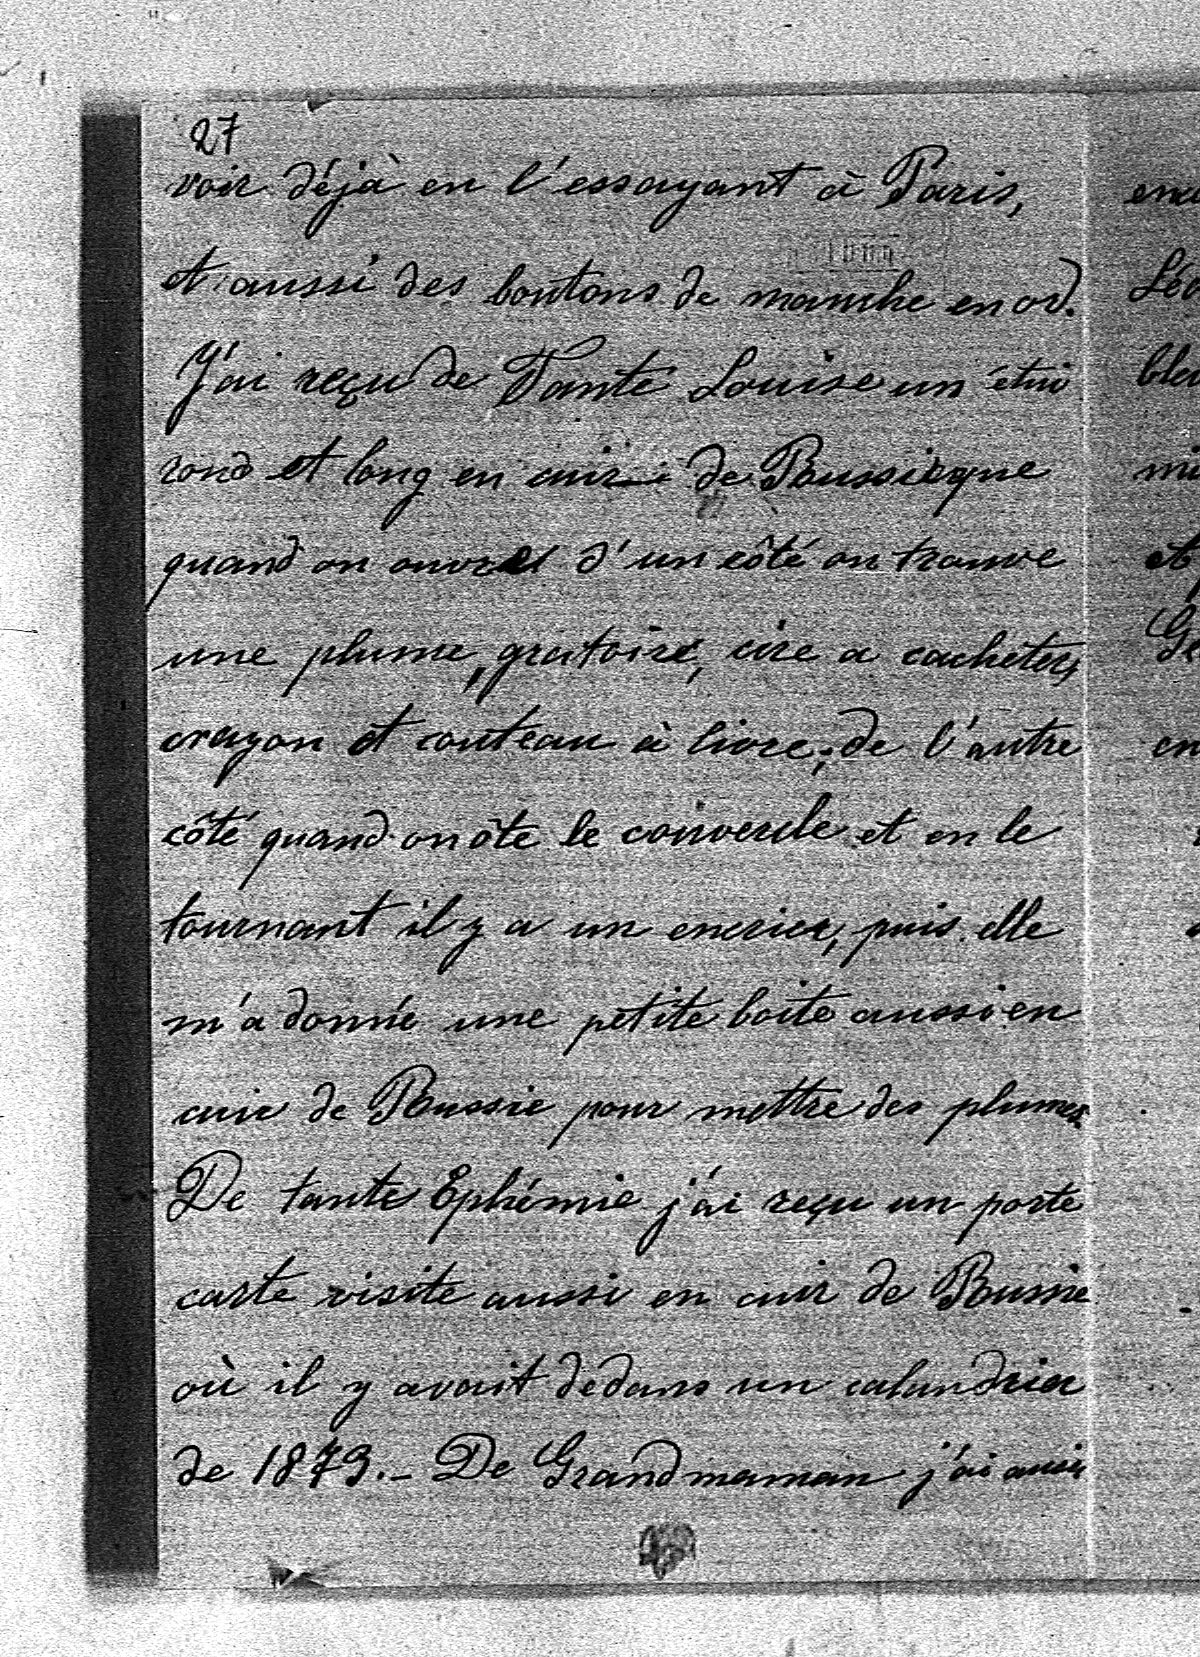 27
voir déjà en l'essayant à Paris,
et aussi des boutons de manche en or.
J'ai reçu de Tante Louise un étui
rond et long en cuir de Roussie que
quand on ouvre d'un côté on trouve
une plume, gratoire, cire a cacheter,
crayon et couteau à livre; de l'autre
côté quand on ôte le couvercle et en le
tournant il y a un encrier, puis elle
m'a donné une petite boite aussi en
cuir de Roussie pour mettre des plumes
De tante Ephémie j'ai reçu un porte
carte visite aussi en cuir de Roussie
où il y avait dedans un calandrier
de 1873. – De Grandmaman j'ai aussi